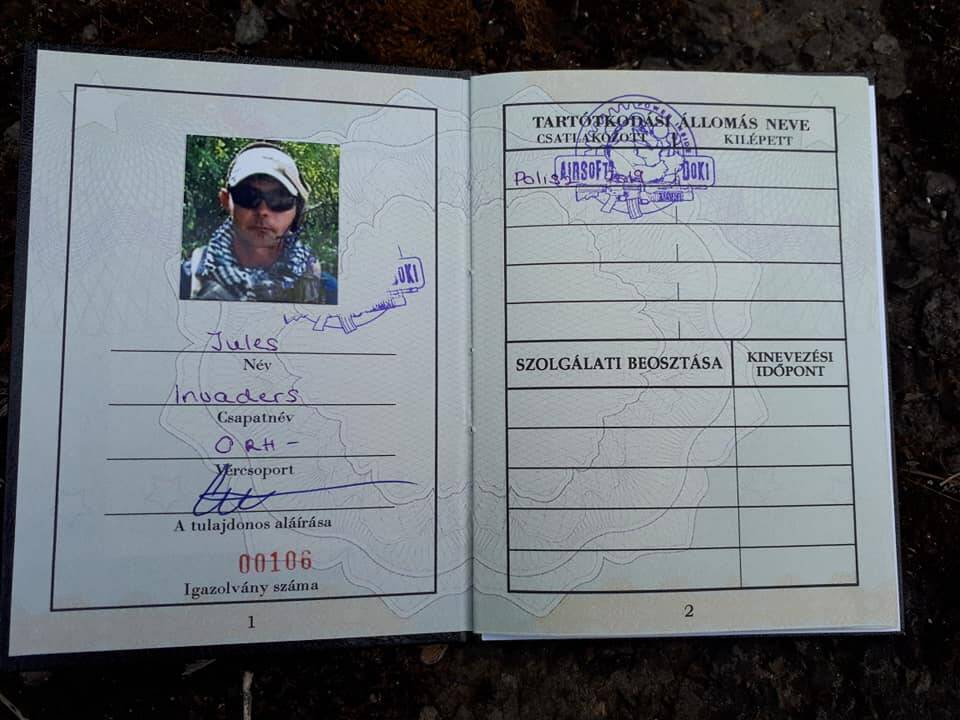 Jules
Név
Invaders
Csapatnév
O RH-
Vércsoport
A tulajdonos aláírása
00106
Igazolvány száma
1
DOKI
TARTÓTKODÁSI ÁLLOMÁS NEVE
CSATLAKOZOTT KILÉPETT
AIRSOFT DOKI
SZOLGÁLATI BEOSZTÁSA
KINEVEZÉSI
IDŐPONT
2